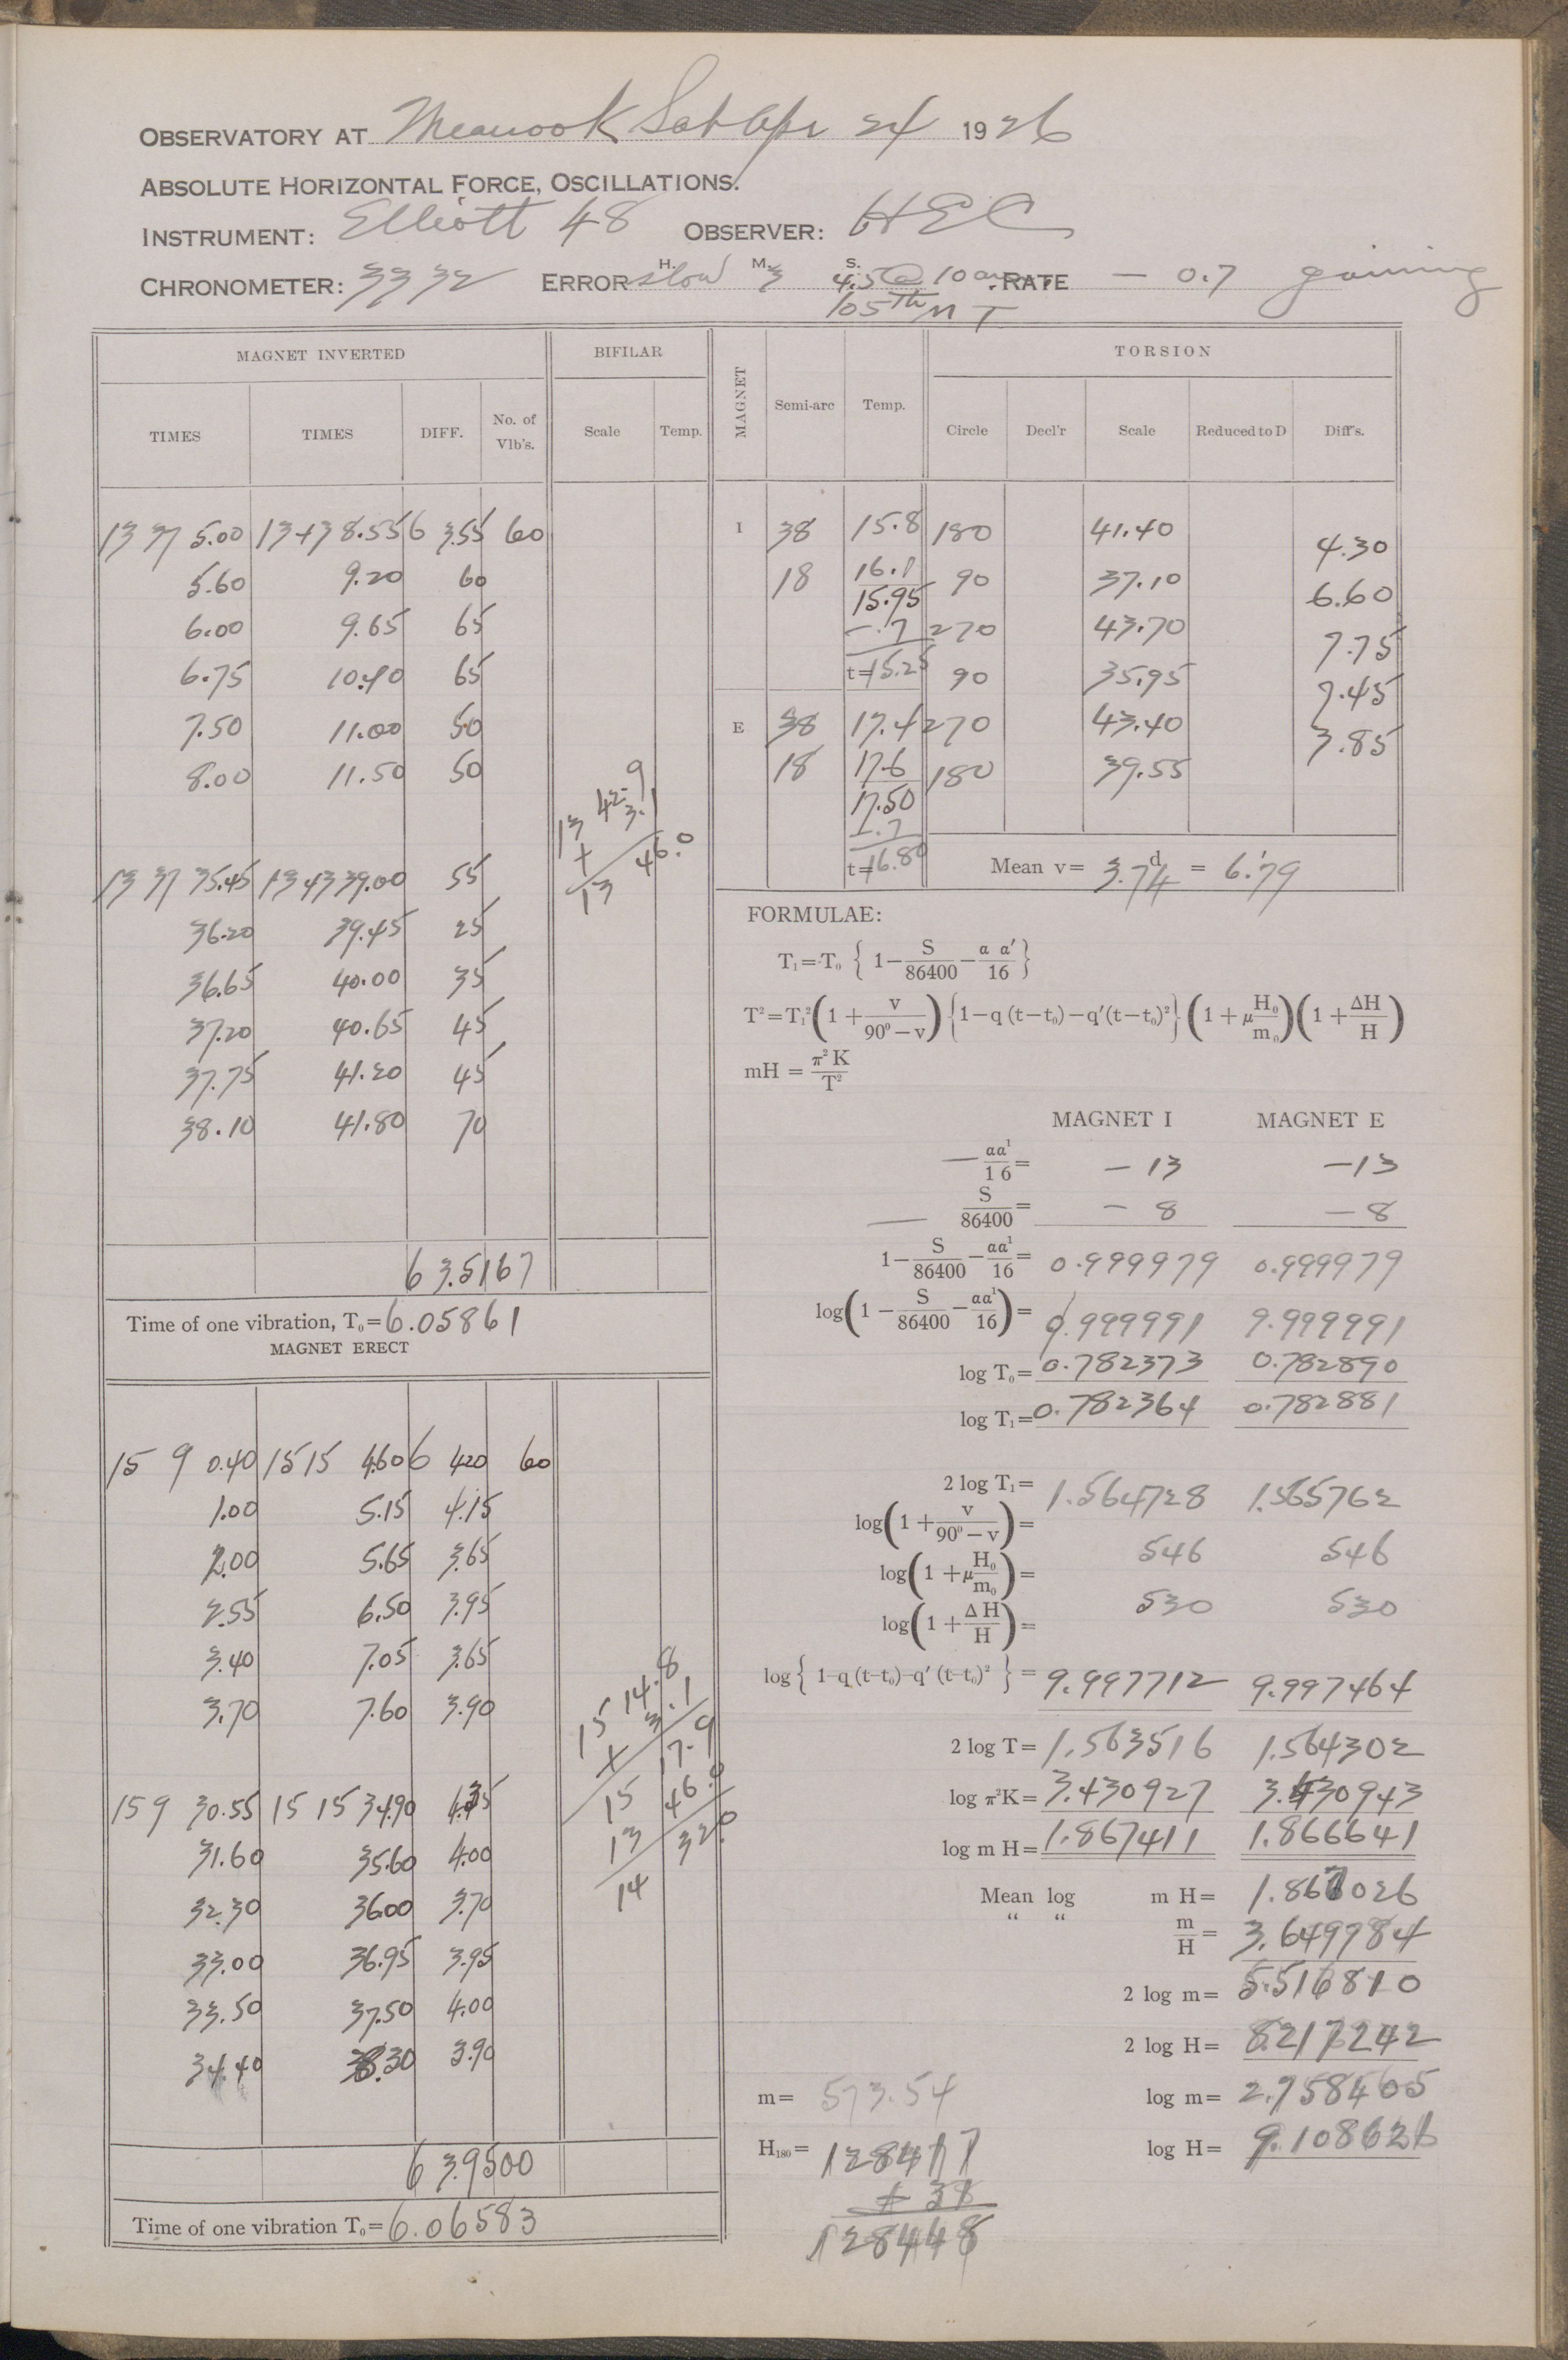 OBSERVATORY AT Meanook Sat Apr 24 1926
ABSOLUTE HORIZONTAL FORCE, OSCILLATIONS.
INSTRUMENT: Elliott 48 OBSERVER: HEC
CHRONOMETER: 3332 ERROR H. slow M. 3 S. 4.5 @ 10 am. RATE — 0.7 gaining
105th M T
MAGNET INVERTED
TIMES TIMES DIFF. No. of Vib's.
BIFILAR
Scale Temp.
13 37 5.00 13 43 8.55 6 3.55 60
5.60 9.20 60
6.00 9.65 65
6.75 10.40 65
7.50 11.00 50
8.00 11.50 50
13 42.9
+ 3.1
13 46.0
13 37 35.45 13 43 39.00 55
36.20 39.45 25
36.65 40.00 35
37.20 40.65 45
37.75 41.20 45
38.10 41.80 70
6 3.5167
Time of one vibration, T₀= 6.05861
MAGNET ERECT
15 9 0.40 15 15 4.60 6 4.20 60
1.00 5.15 4.15
2.00 5.65 3.65
2.55 6.50 3.95
3.40 7.05 3.65
3.70 7.60 3.90
15 14.8
+ 3.1
15 17.9
13 46.0
14 32.0
15 9 30.55 15 15 34.90 4.35
31.60 35.60 4.00
32.30 36.00 3.70
33.00 36.95 3.95
33.50 37.50 4.00
34.40 38.30 3.90
6 3.9500
Time of one vibration T₀= 6.06583
MAGNET Semi-arc Temp.
TORSION
Circle Decl'r Scale Reduced to D Diff's.
I 38 15.8 180 41.40
4.30
18 16.1 90 37.10
15.95
6.60
-.7 270 43.70
7.75
t= 15.25 90 35.95
7.45
E 38 17.4 270 43.40
3.85
18 17.6 180 39.55
17.50
-.7
t= 16.80
Mean v= 3.74 d = 6.'79
FORMULAE:
T₁=T₀ { 1− S/86400 − α α′/16 }
T²=T₁²(1 + v/90°−v) {1−q (t−t₀)−q′(t−t₀)²} (1+μ H₀/m₀)(1+ ΔH/H)
mH = π² K/T²
MAGNET I MAGNET E
— αα¹/16 = − 13 −13
— S/86400 = − 8 −8
1− S/86400 − αα¹/16 = 0.999979 0.999979
log(1 − S/86400 − αα¹/16) = 9.999991 9.999991
log T₀= 0.782373 0.782890
log T₁= 0.782364 0.782881
2 log T₁= 1.564728 1.565762
log(1 + v/90°−v) = 546 546
log(1 +μ H₀/m₀) = 530 530
log(1 + Δ H/H) =
log{ 1-q (t-t₀)-q′ (t-t₀)² } = 9.997712 9.997464
2 log T= 1.563516 1.564302
log π²K= 3.430927 3.430943
log m H= 1.867411 1.866641
Mean log m H= 1.867026
“ “ m/H = 3.649784
2 log m= 5.516810
2 log H= 8.217242
m= 573.54 log m= 2.758405
H₁₈₀= 128417 log H= 9.108621
+ 31
128448